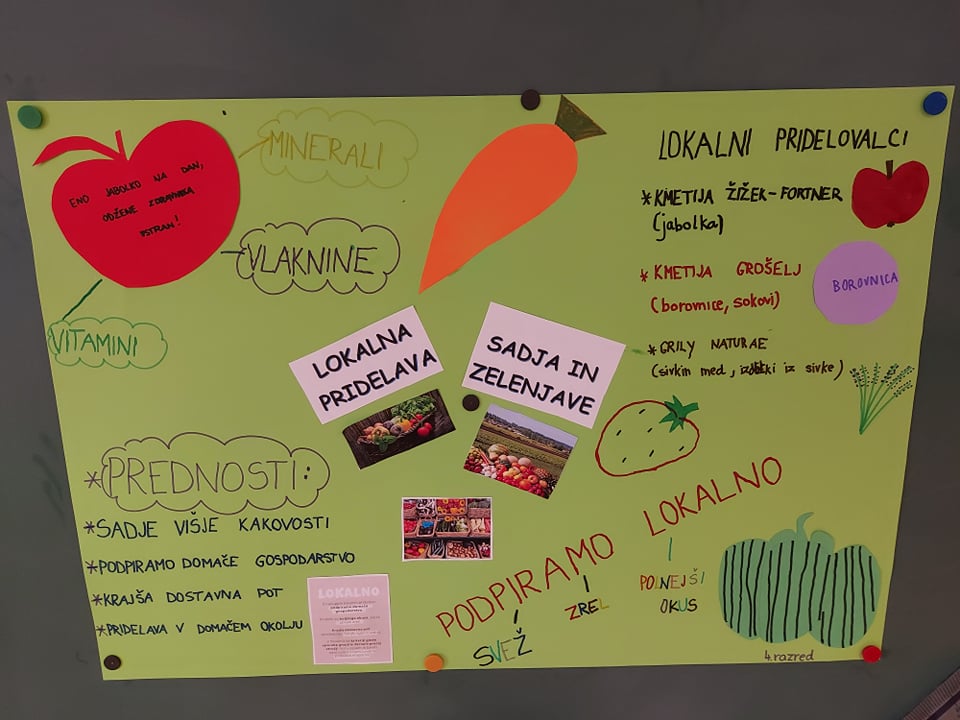 ENO JABOLKO NA DAN,
ODŽENE ZDRAVNIKA
STRAN!
MINERALI
VLAKNINE
VITAMINI
LOKALNA
PRIDELAVA
SADJA IN
ZELENJAVE
LOKALNI PRIDELOVALCI
*KMETIJA ŽIŽEK-FORTNER
(jabolka)
*KMETIJA GROŠELJ
(borovnice, sokovi)
BOROVNICA
*GRILY NATURAE
(sivkin med, izdelki iz sivke)
*PREDNOSTI:
*SADJE VIŠJE KAKOVOSTI
*PODPIRAMO DOMAČE GOSPODARSTVO
*KRAJŠA DOSTAVNA POT
*PRIDELAVA V DOMAČEM OKOLJU
LOKALNO
PODPIRAMO LOKALNO
SVEŽ
ZREL
POLNEJŠI
OKUS
4.razred